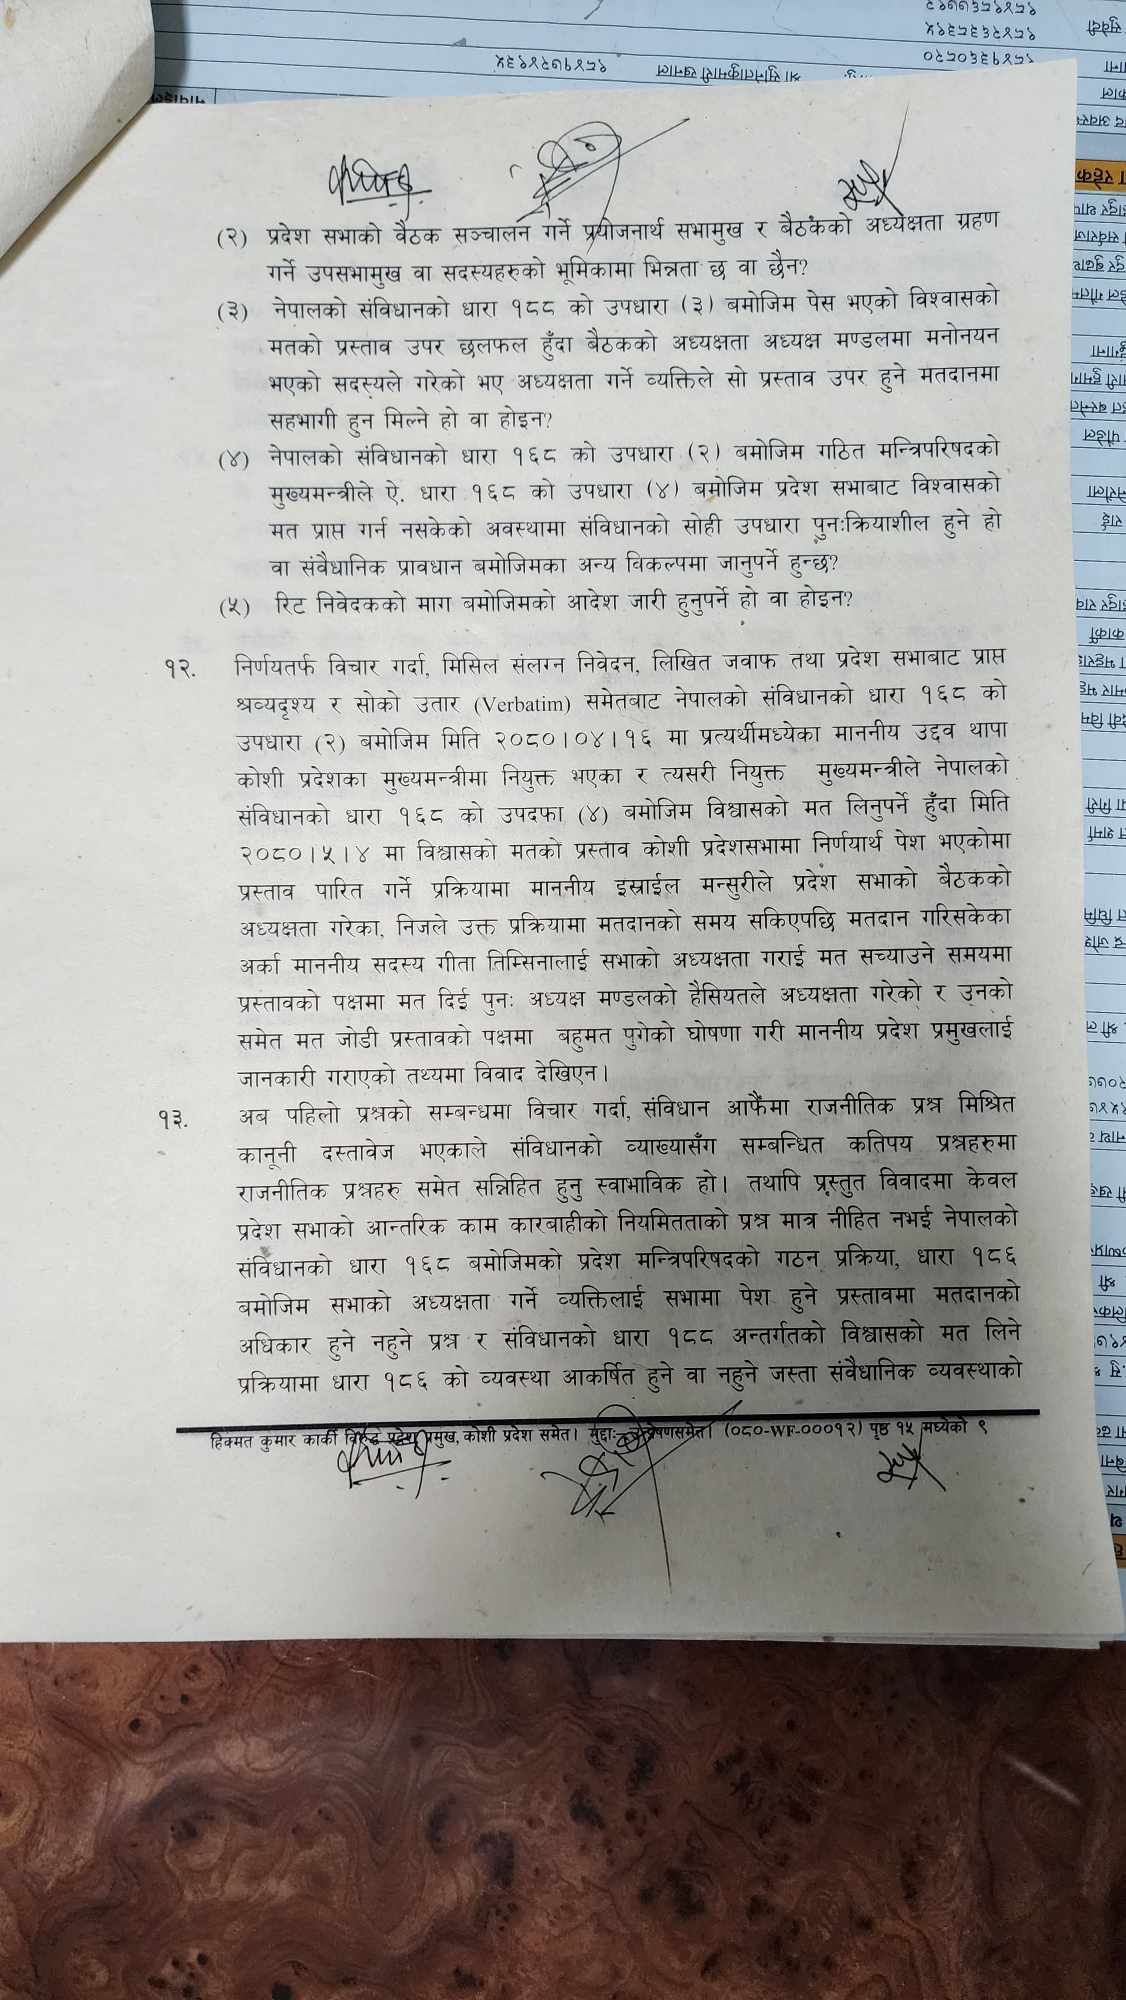 (२) प्रदेश सभाको वैठक सञ्चालन गर्ने प्रयोजनार्थ सभामुख र बैठकको अध्यक्षता ग्रहण
गर्ने उपसभामुख वा सदस्यहरुको भूमिकामा भिन्नता छ वा छैन?
(३) नेपालको संविधानको धारा १८८ को उपधारा (३) बमोजिम पेस भएको विश्वासको
मतको प्रस्ताव उपर छलफल हुँदा बैठकको अध्यक्षता अध्यक्ष मण्डलमा मनोनयन
भएको सदस्यले गरेको भए अध्यक्षता गर्ने व्यक्तिले सो प्रस्ताव उपर हुने मतदानमा
सहभागी हुन मिल्ने हो वा होइन?
(४) नेपालको संविधानको धारा १६८ को उपधारा (२) बमोजिम गठित मन्त्रिपरिषदको
मुख्यमन्त्रीले ऐ. धारा १६८ को उपधारा (४) बमोजिम प्रदेश सभाबाट विश्वासको
मत प्राप्त गर्न नसकेको अवस्थामा संविधानको सोही उपधारा पुनःक्रियाशील हुने हो
वा संवैधानिक प्रावधान बमोजिमका अन्य विकल्पमा जानुपर्ने हुन्छ?
(५) रिट निवेदकको माग बमोजिमको आदेश जारी हुनुपर्ने हो वा होइन?
१२. निर्णयतर्फ विचार गर्दा, मिसिल संलग्न निवेदन, लिखित जवाफ तथा प्रदेश सभाबाट प्राप्त
श्रव्यदृश्य र सोको उतार (Verbatim) समेतबाट नेपालको संविधानको धारा १६८ को
उपधारा (२) बमोजिम मिति २०८०।०४।१६ मा प्रत्यर्थीमध्येका माननीय उद्दव थापा
कोशी प्रदेशका मुख्यमन्त्रीमा नियुक्त भएका र त्यसरी नियुक्त मुख्यमन्त्रीले नेपालको
संविधानको धारा १६८ को उपदफा (४) बमोजिम विश्वासको मत लिनुपर्ने हुँदा मिति
२०८०।५।४ मा विश्वासको मतको प्रस्ताव कोशी प्रदेशसभामा निर्णयार्थ पेश भएकोमा
प्रस्ताव पारित गर्ने प्रक्रियामा माननीय इस्राईल मन्सुरीले प्रदेश सभाको बैठकको
अध्यक्षता गरेका, निजले उक्त प्रक्रियामा मतदानको समय सकिएपछि मतदान गरिसकेका
अर्का माननीय सदस्य गीता तिम्सिनालाई सभाको अध्यक्षता गराई मत सच्याउने समयमा
प्रस्तावको पक्षमा मत दिई पुनः अध्यक्ष मण्डलको हैसियतले अध्यक्षता गरेको र उनको
समेत मत जोडी प्रस्तावको पक्षमा बहुमत पुगेको घोषणा गरी माननीय प्रदेश प्रमुखलाई
जानकारी गराएको तथ्यमा विवाद देखिएन।
१३. अब पहिलो प्रश्नको सम्बन्धमा विचार गर्दा, संविधान आफैंमा राजनीतिक प्रश्न मिश्रित
कानूनी दस्तावेज भएकाले संविधानको व्याख्यासँग सम्बन्धित कतिपय प्रश्नहरुमा
राजनीतिक प्रश्नहरु समेत सन्निहित हुनु स्वाभाविक हो। तथापि प्रस्तुत विवादमा केवल
प्रदेश सभाको आन्तरिक काम कारबाहीको नियमितताको प्रश्न मात्र नीहित नभई नेपालको
संविधानको धारा १६८ बमोजिमको प्रदेश मन्त्रिपरिषदको गठन प्रक्रिया, धारा १८६
बमोजिम सभाको अध्यक्षता गर्ने व्यक्तिलाई सभामा पेश हुने प्रस्तावमा मतदानको
अधिकार हुने नहुने प्रश्न र संविधानको धारा १८८ अन्तर्गतको विश्वासको मत लिने
प्रक्रियामा धारा १८६ को व्यवस्था आकर्षित हुने वा नहुने जस्ता संवैधानिक व्यवस्थाको
हिक्मत कुमार कार्की विरुद्ध प्रदेश प्रमुख, कोशी प्रदेश समेत। मुद्दाः- उत्प्रेषणसमेत। (०८०-WF-०००१२) पृष्ठ १५ मध्येको ९